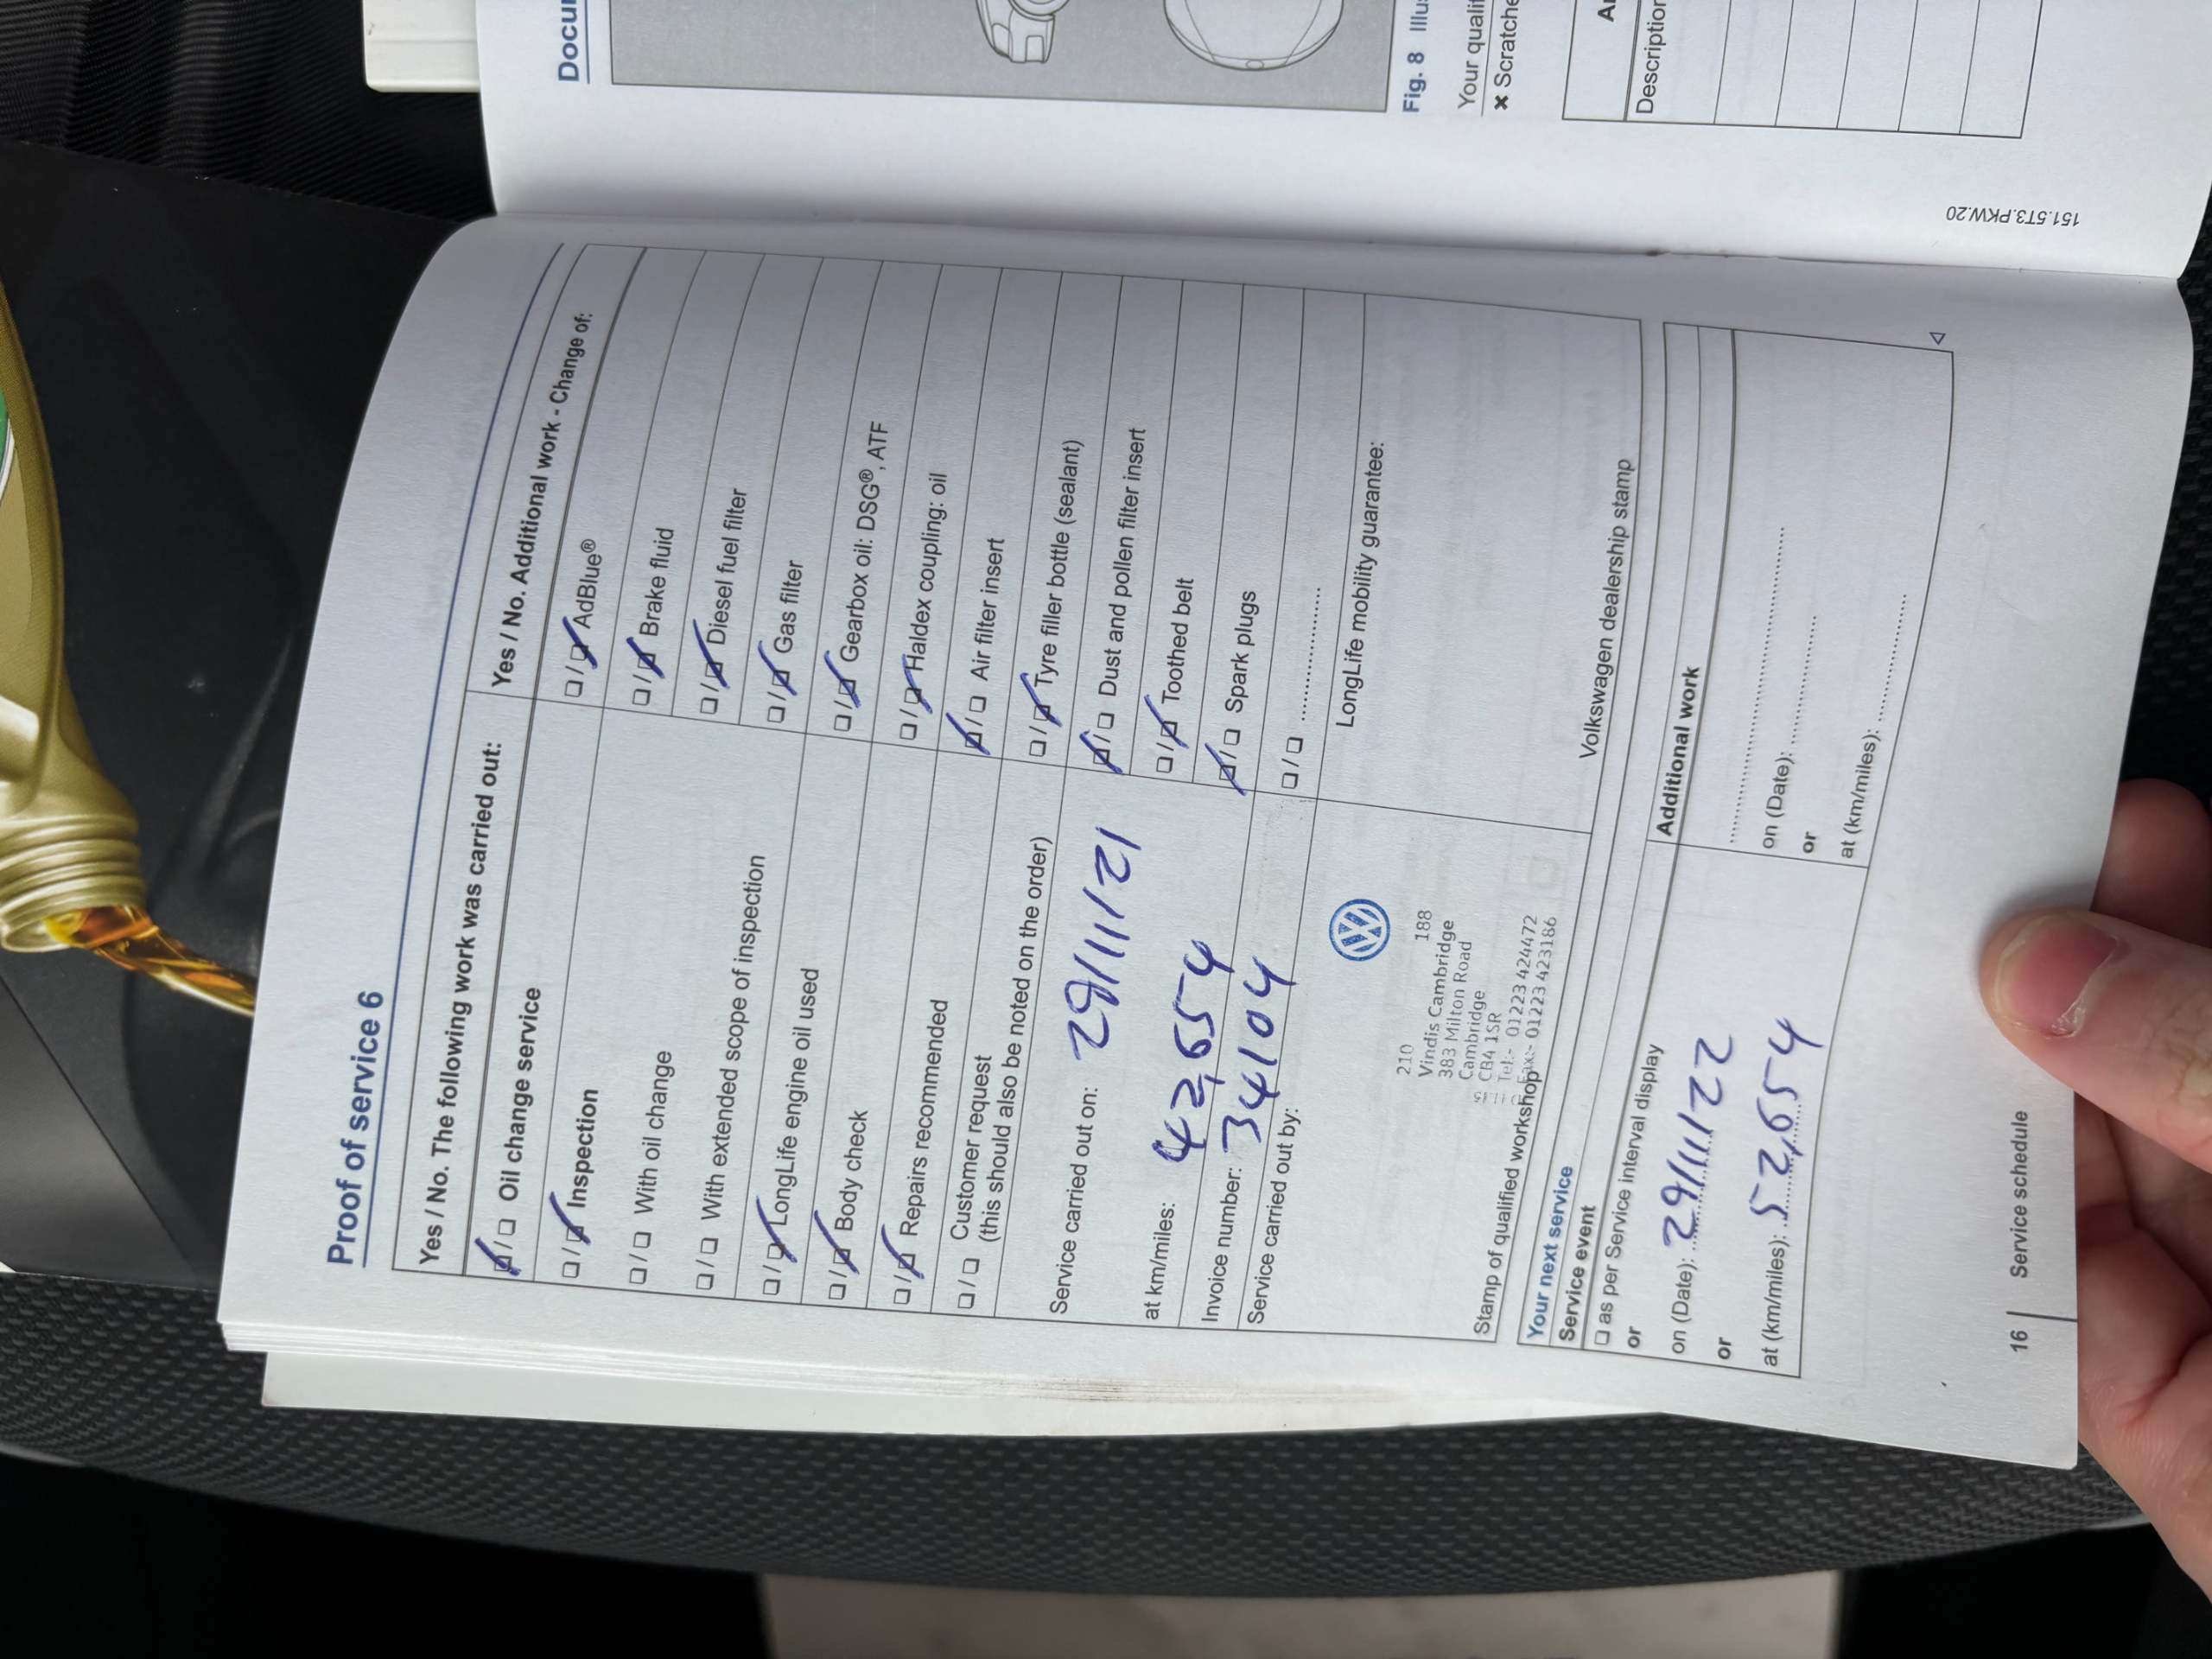 Proof of service 6
Yes / No. The following work was carried out:
☑/☐ Oil change service
☐/☑ Inspection
☐/☐ With oil change
☐/☐ With extended scope of inspection
☐/☑ LongLife engine oil used
☐/☑ Body check
☐/☑ Repairs recommended
☐/☐ Customer request
(this should also be noted on the order)
Service carried out on: 29/11/21
at km/miles: 42,654
Invoice number: 344104
Service carried out by:
210 188
Vindis Cambridge
383 Milton Road
Cambridge
CB4 1SR
Tel:- 01223 424472
Fax:- 01223 423186
Stamp of qualified workshop
Yes / No. Additional work - Change of:
☐/☑ AdBlue®
☐/☑ Brake fluid
☐/☑ Diesel fuel filter
☐/☑ Gas filter
☐/☑ Gearbox oil: DSG®, ATF
☐/☑ Haldex coupling: oil
☑/☐ Air filter insert
☐/☑ Tyre filler bottle (sealant)
☑/☐ Dust and pollen filter insert
☐/☑ Toothed belt
☑/☐ Spark plugs
☐/☐ ....................
LongLife mobility guarantee:
Volkswagen dealership stamp
Your next service
Service event
☐ as per Service interval display
or
on (Date): 29/11/22
or
at (km/miles): 52,654
Additional work
on (Date):
or
at (km/miles):
16 Service schedule
151.5T3.PKW.20
Docu
Fig. 8 Illu
Your quali
✖ Scratche
Description